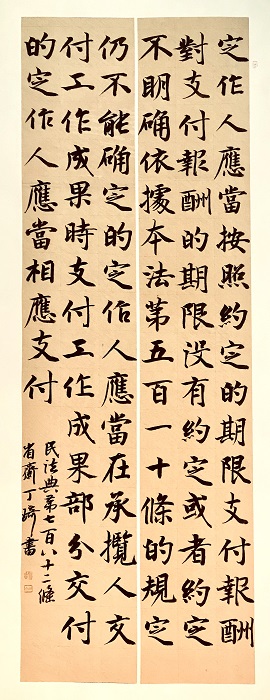 定作人應當按照約定的期限支付報酬
對支付報酬的期限没有約定或者約定
不明确依據本法第五百一十條的規定
仍不能确定的定作人應當在承攬人交
付工作成果時支付工作成果部分交付
的定作人應當相應支付
民法典第七百八十二條
省齋丁書